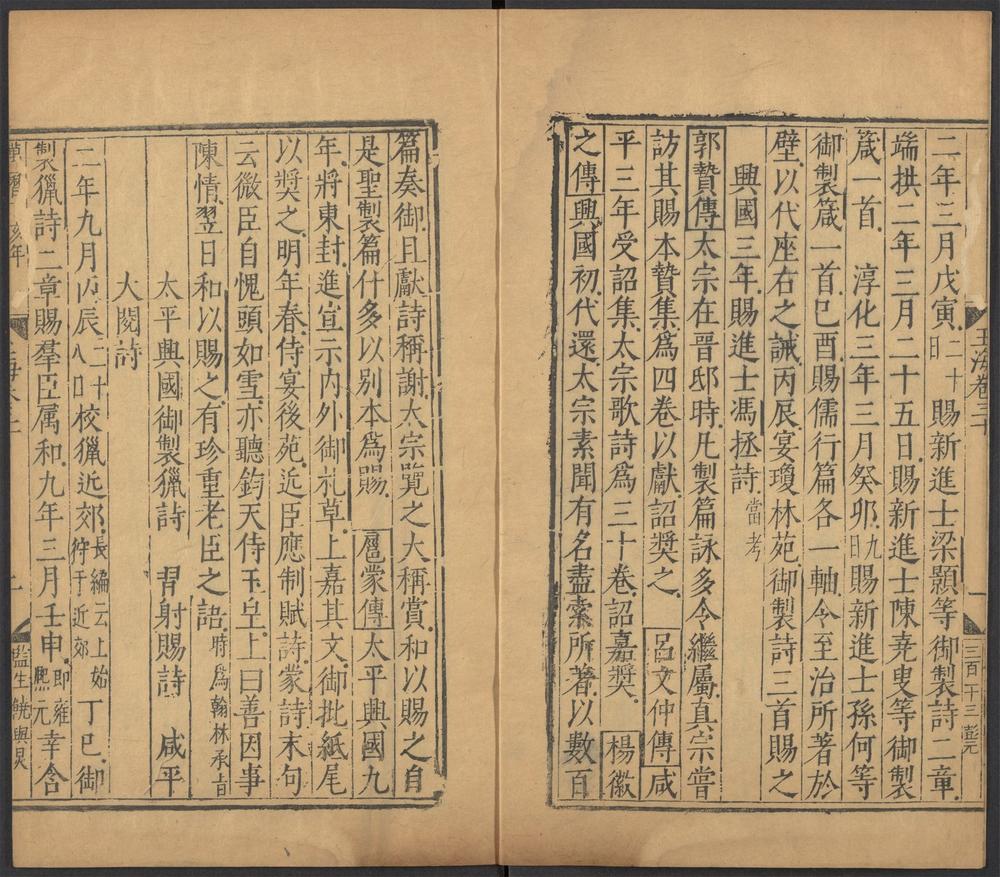 玉海卷三十
一
三百十三 彭元
二年三月戊寅二十日賜新進士梁顥等御製詩二章
端拱二年三月二十五日賜新進士陳堯叟等御製
箴一首 淳化三年三月癸卯九日賜新進士孫何等
御製箴一首巳酉賜儒行篇各一軸令至治所著於
壁以代座右之誡丙辰宴瓊林苑御製詩三首賜之
興國三年賜進士馮拯詩當考
郭贄傳太宗在晉邸時凡製篇詠多令繼屬真宗嘗
訪其賜本贄集為四卷以獻詔奬之 呂文仲傳咸
平三年受詔集太宗歌詩為三十卷詔嘉奬 楊徽
之傳興國初代還太宗素聞有名盡索所著以數百
篇奏御且獻詩稱謝太宗覽之大稱賞和以賜之自
是聖製篇什多以別本為賜 扈蒙傳太平興國九
年將東封進宣示內外御札草上嘉其文御批紙尾
以奬之明年春侍宴後苑近臣應制賦詩蒙詩末句
云微臣自愧頭如雪亦聽鈞天侍玉皇上曰善因事
陳情翌日和以賜之有珍重老臣之語時為翰林承旨
太平興國御製獵詩 習射賜詩 咸平
大閱詩
二年九月丙辰二十八日校獵近郊長編云上始狩于近郊丁巳御
製獵詩二章賜羣臣属和九年三月壬申即雍熙元幸含
監生饒與㫤